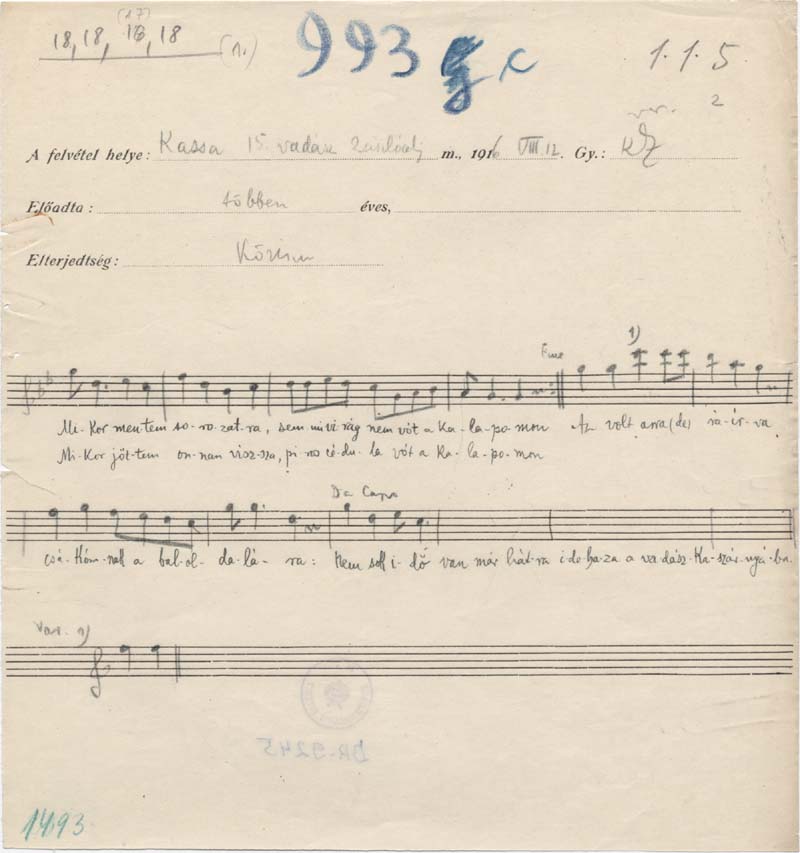 (17)
18, 18, 18, 18 (1.)
993
1.1.5.
var. 2
A felvétel helye: Kassa 15. vadász zászlóalj m., 1916 VIII 12. Gy.: KZ
Előadta: többen éves,
Elterjedtség:
Fine 1)
Mi-kor mentem so-ro-zat-ra, sem mi vi-rág nem vót a ka-la-po-mon Az volt arra(de) rá-ír-va
Mi-kor jöt-tem on-nan visz-sza, pi-ros cé-du-la vót a ka-la-po-mon
Da Capo
csá-kóm-nak a bal-ol-da-lá-ra: Nem sok i-dő van már hát-ra i-de-ha-za a va-dász-ka-szár-nyá-ba.
Var. 1)
DR-9245
1493